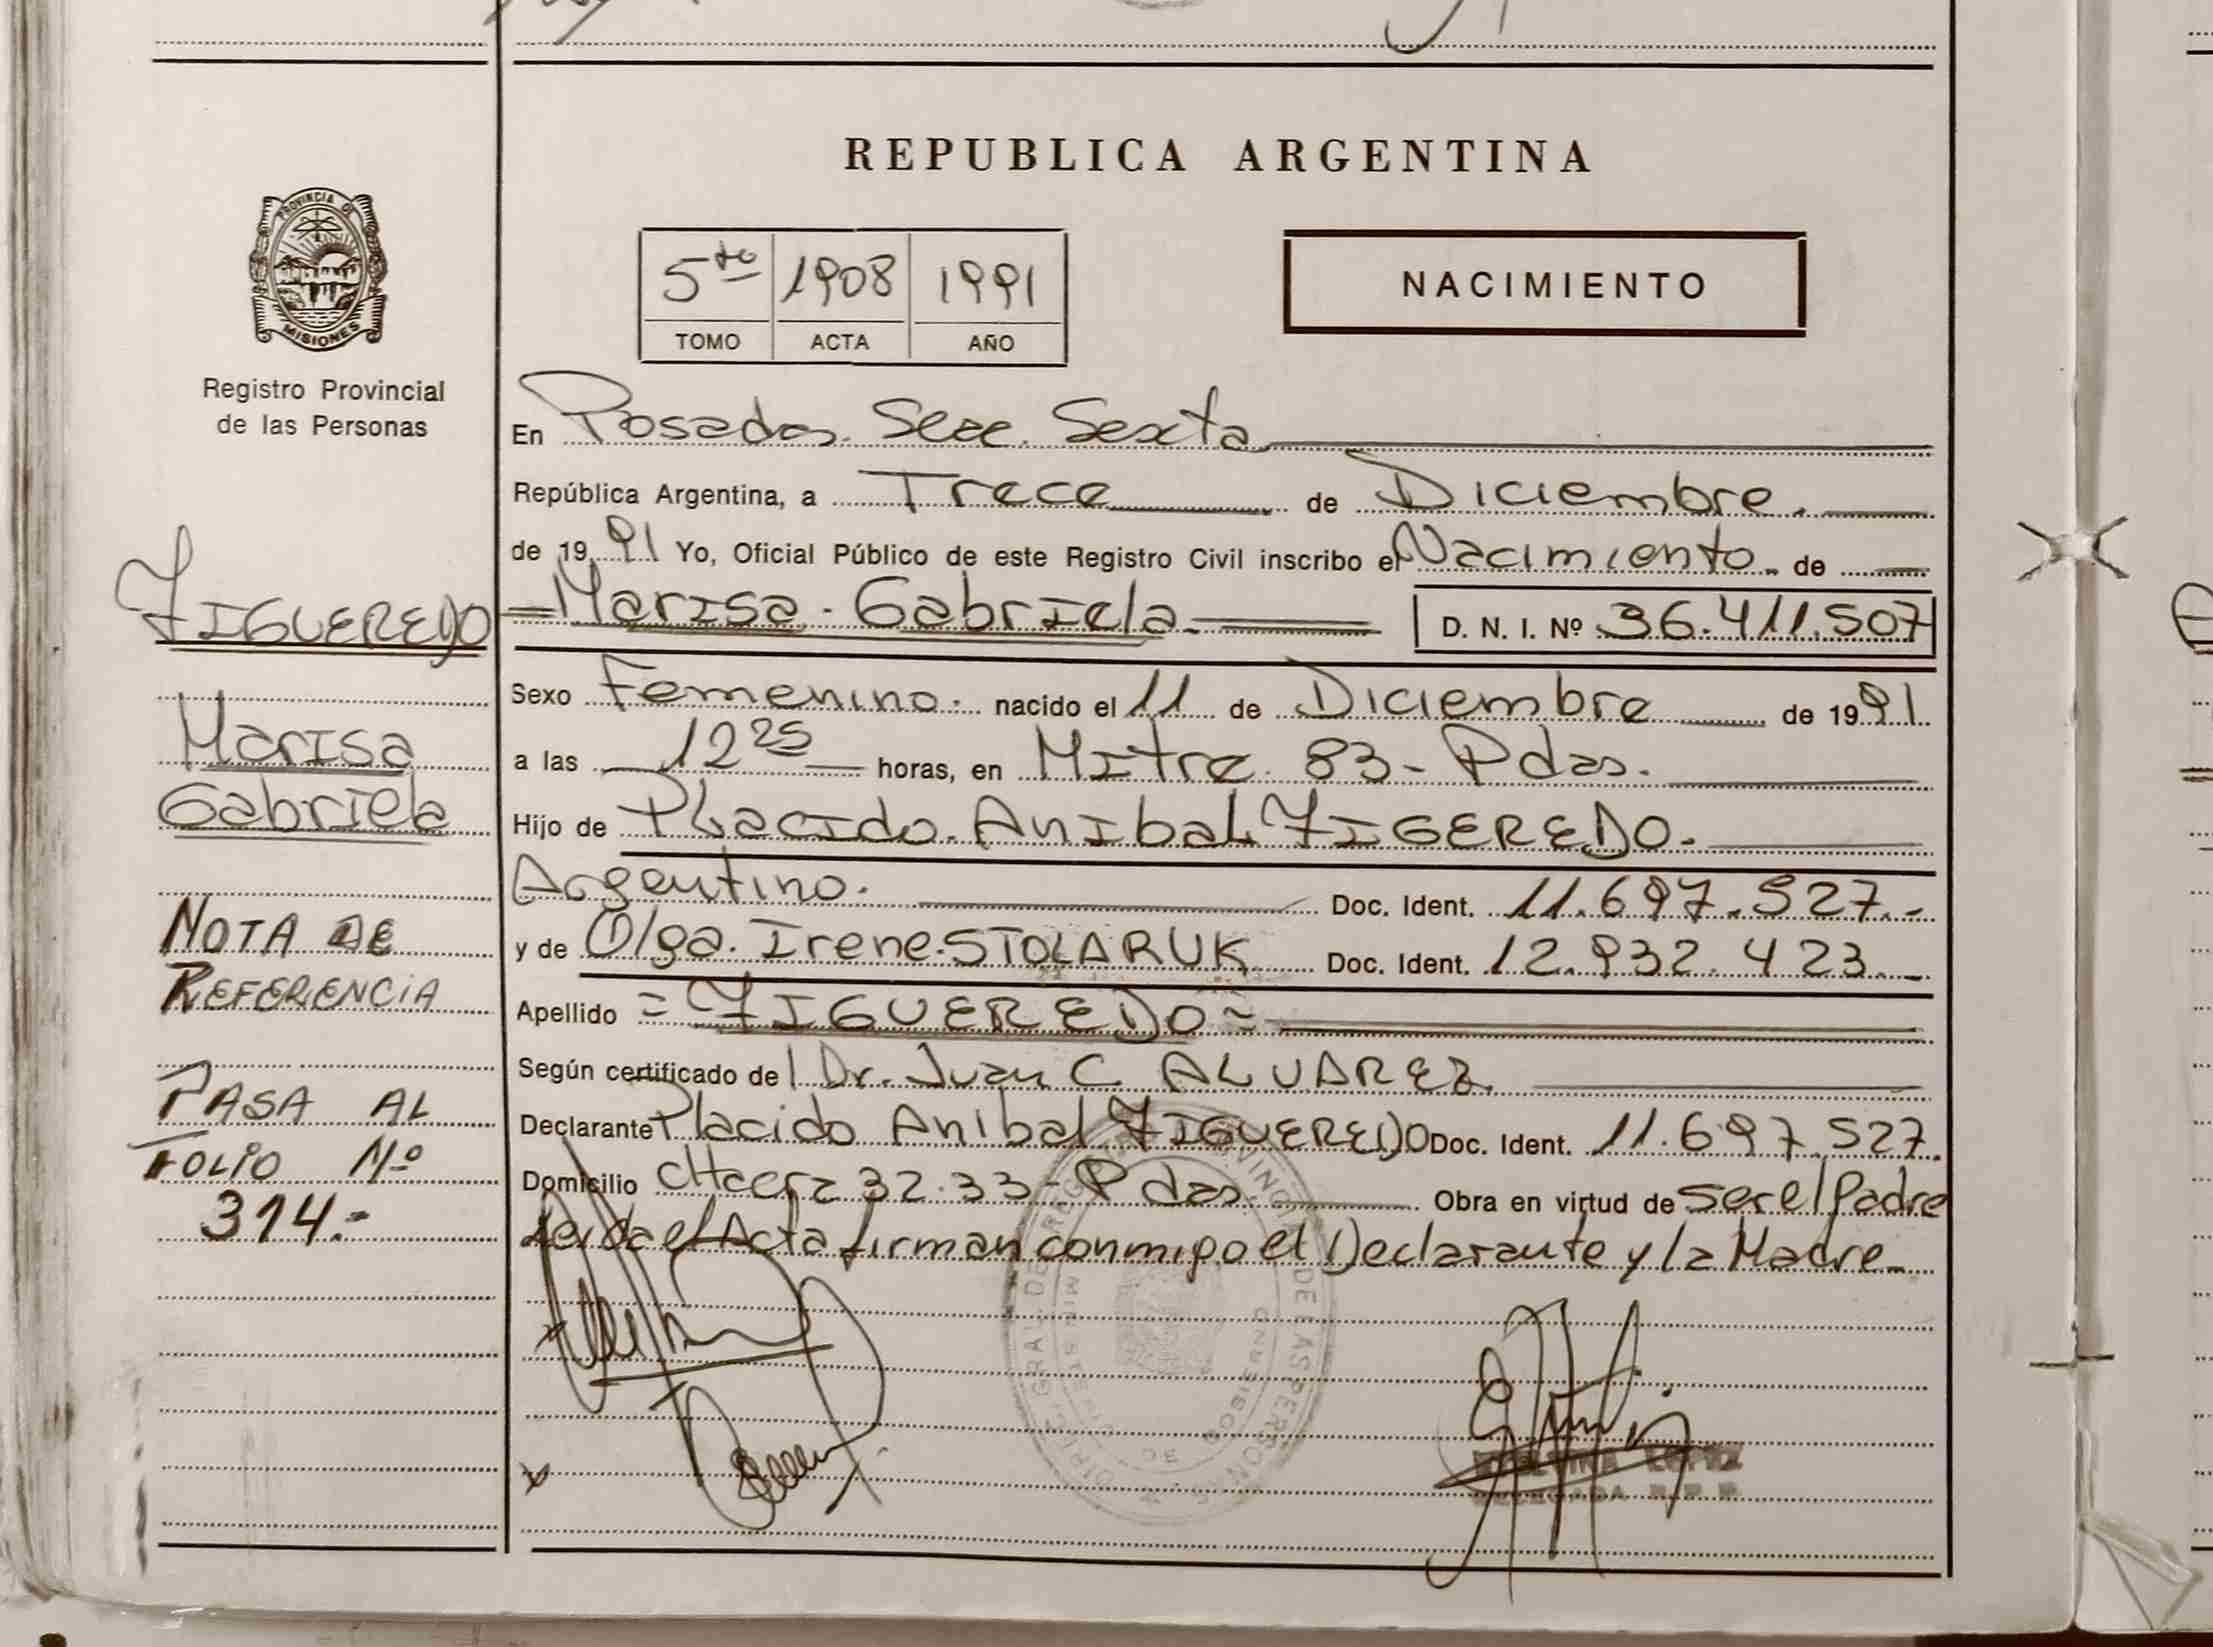 REPUBLICA ARGENTINA
PROVINCIA DE
MISIONES
Registro Provincial
de las Personas
5to 1908 1991
TOMO ACTA AÑO
NACIMIENTO
En Posadas. Secc. Sexta
República Argentina, a Trece de Diciembre.
de 1991 Yo, Oficial Público de este Registro Civil inscribo el Nacimiento de
FIGUEREDO
Marisa
Gabriela
NOTA DE
REFERENCIA
PASA AL
FOLIO Nº
314.-
=Marisa. Gabriela= D. N. I. Nº 36.411.507
Sexo Femenino. nacido el 11 de Diciembre de 1991
a las 12 25 horas, en Mitre 83- Pdas.
Hijo de Placido. Anibal FIGEREDO.
Argentino. Doc. Ident. 11.697.527.-
y de Olga. Irene. STOLARUK Doc. Ident. 12.932.423.-
Apellido = FIGUEREDO =
Según certificado del Dr. Juan C. ALVAREZ.
Declarante Placido Anibal FIGUEREDO Doc. Ident. 11.697.527.
Domicilio CHacra 32.33- Pdas. Obra en virtud de ser el Padre
Leida el Acta firman conmigo el Declarante y la Madre.
LOPEZ